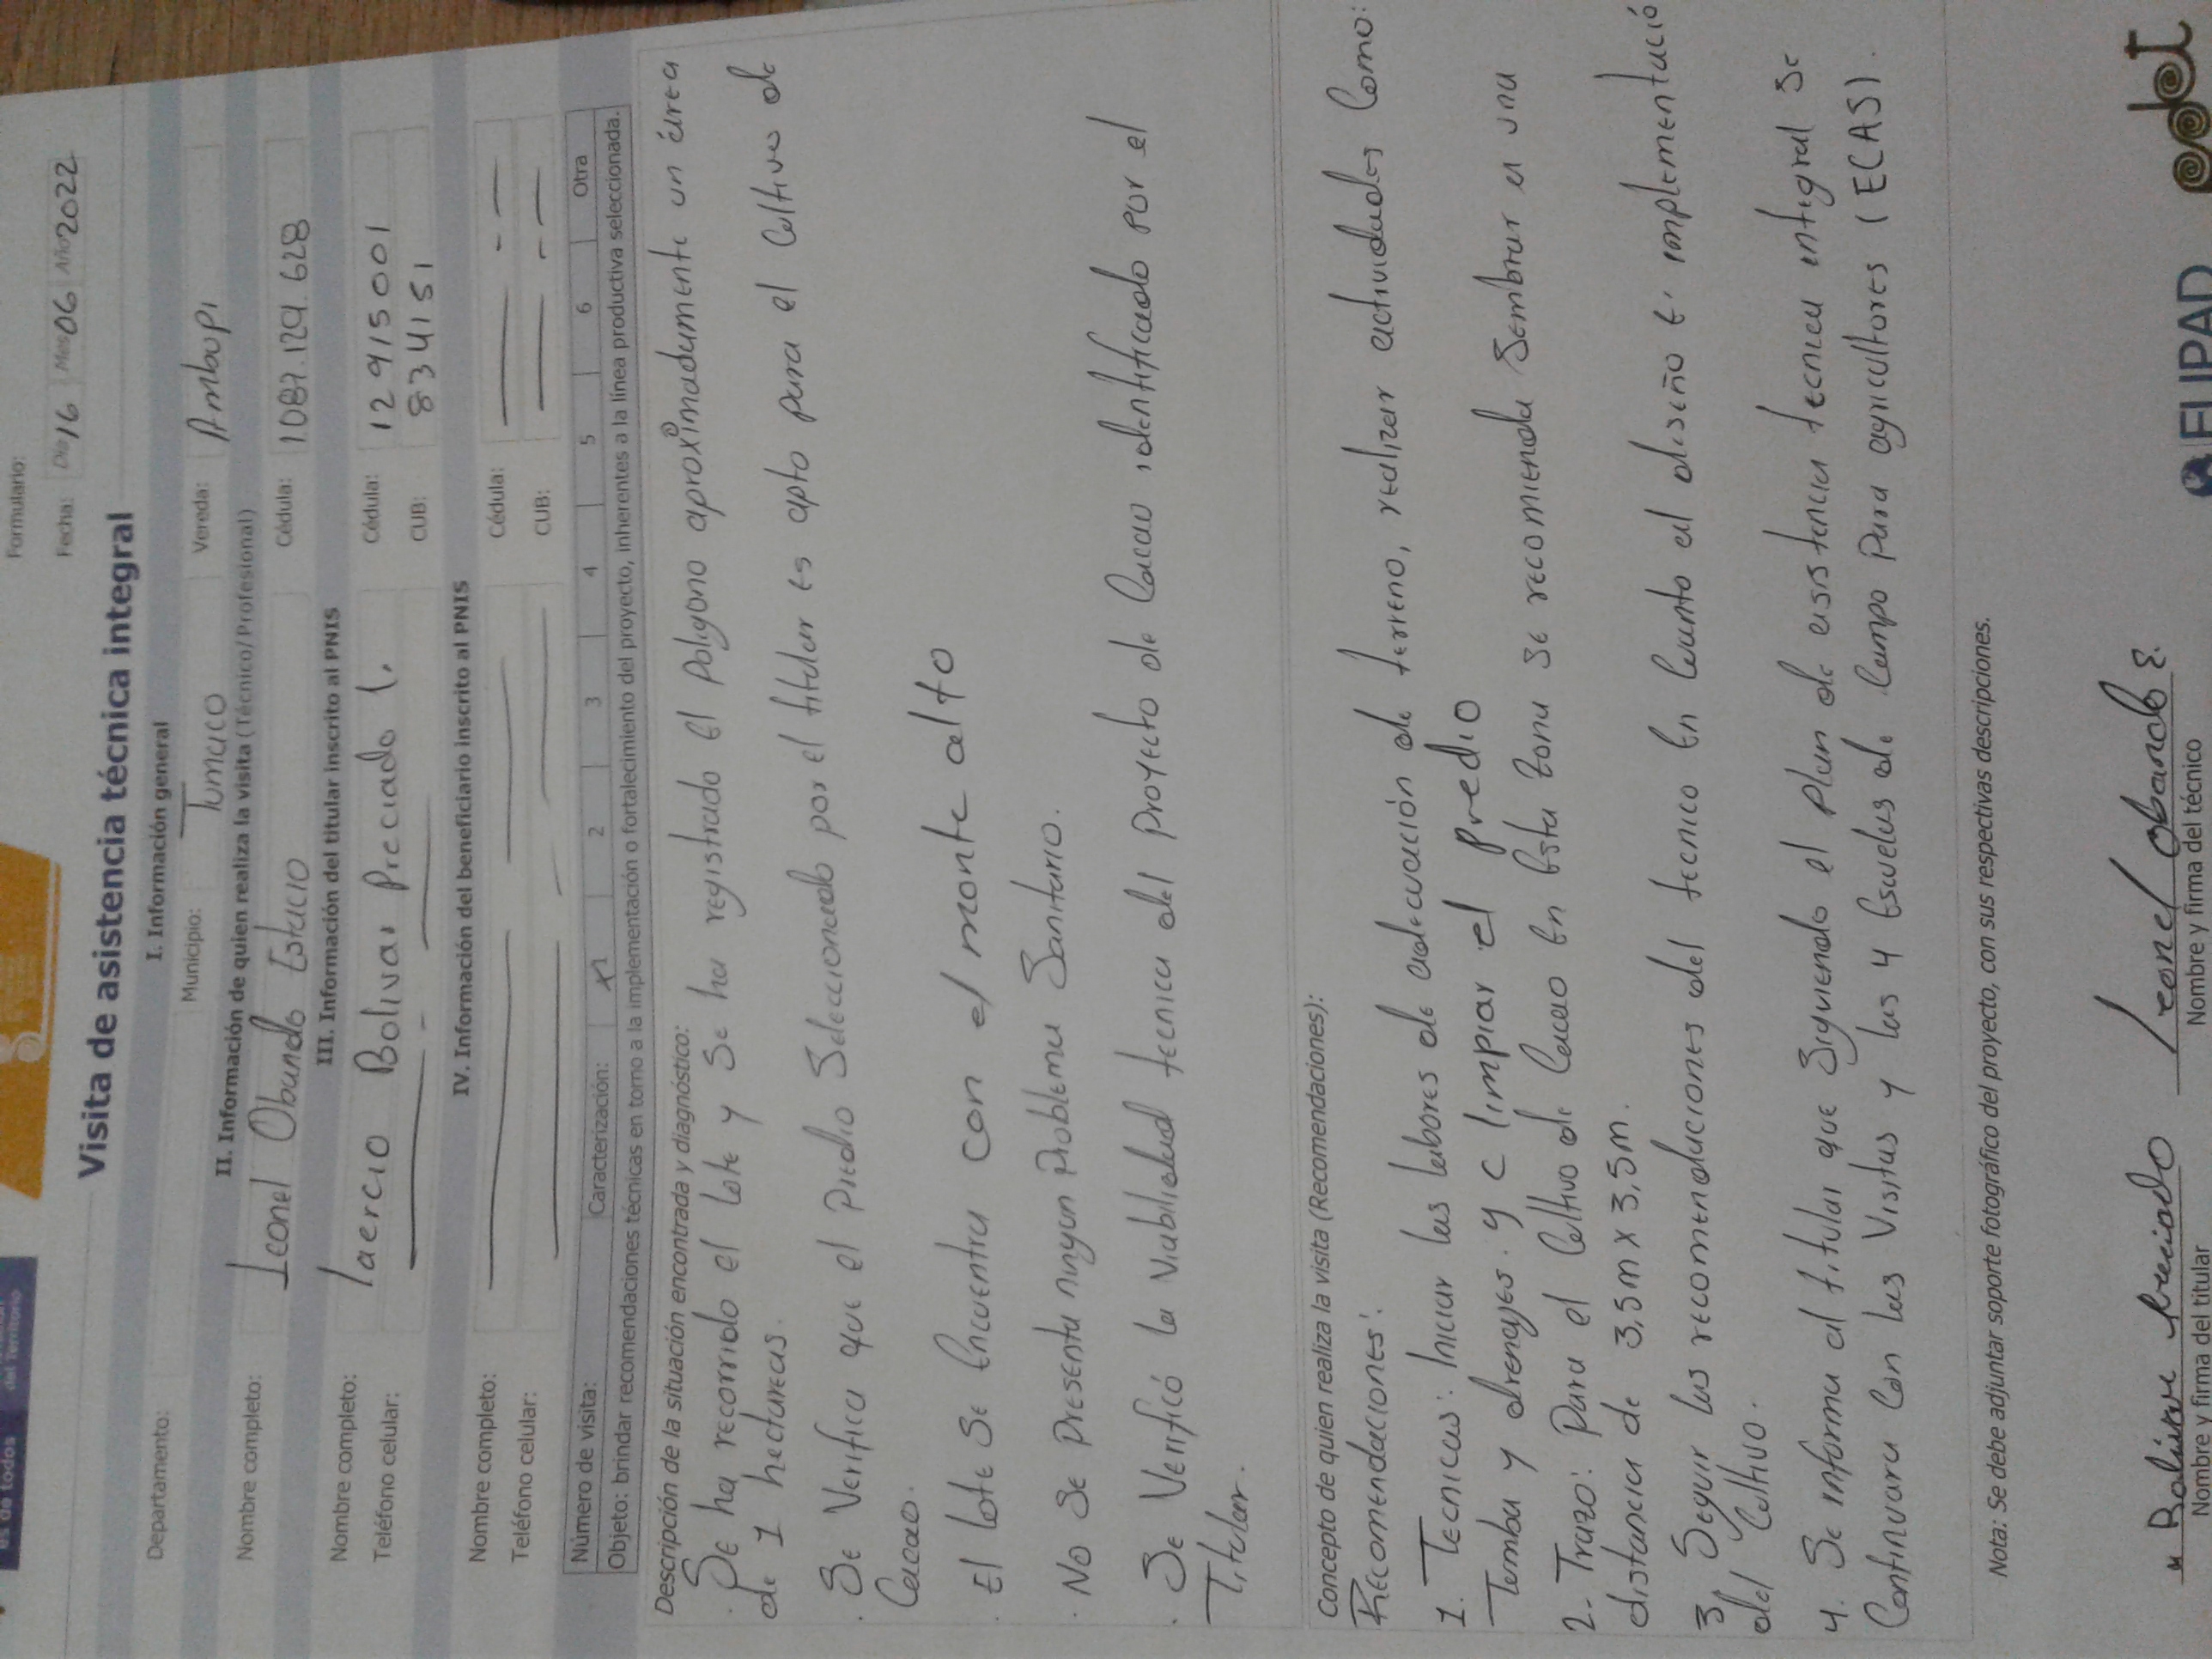 es de todos
del Territorio
Formulario:
Fecha: Día 16 Mes 06 Año 2022
Visita de asistencia técnica integral
I. Información general
Departamento: Municipio: Tumaco Vereda: Ambupi
II. Información de quien realiza la visita (Técnico/Profesional)
Nombre completo: Leonel Obando Estacio Cédula: 1087.124.628
III. Información del titular inscrito al PNIS
Nombre completo: Laercio Bolivar Preciado C. Cédula: 12915001
Teléfono celular: CUB: 834151
IV. Información del beneficiario inscrito al PNIS
Nombre completo: Cédula:
Teléfono celular: CUB:
Número de visita: Caracterización: X 1 2 3 4 5 6 Otra
Objeto: brindar recomendaciones técnicas en torno a la implementación o fortalecimiento del proyecto, inherentes a la línea productiva seleccionada.
Descripción de la situación encontrada y diagnóstico:
. Se ha recorrido el lote y se ha registrado el Poligono aproximadamente un área
de 1 hectareas.
. Se Verifica que el Predio Seleccionado por el titular es apto para el Cultivo de
Cacao.
. El lote Se Encuentra con el monte alto
. No Se Presenta ningun Problema Sanitario.
. Se Verificó la Viabilidad tecnica del Proyecto de Cacao identificado por el
Titular.
Concepto de quien realiza la visita (Recomendaciones):
Recomendaciones: 
1. Tecnicas: Iniciar las labores de adecuación de terreno, realizar actividades Como:
Tumba y drenajes. y limpiar el predio
2- Trazo: Para el Cultivo de Cacao En Esta Zona Se recomienda Sembrar en una
distancia de 3,5m x 3,5m.
3 Seguir las recomendaciones del tecnico En Cuanto al diseño e implementació
del Cultivo.
4. Se informa al titular que Siguiendo el Plan de asistencia tecnica integral Se
Continuara Con las Visitas y las 4 Escuelas de Campo Para agricultores (ECAS).
Nota: Se debe adjuntar soporte fotográfico del proyecto, con sus respectivas descripciones.
Bolivar Preciado Leonel Obando E.
Nombre y firma del titular Nombre y firma del técnico
ELIPAD